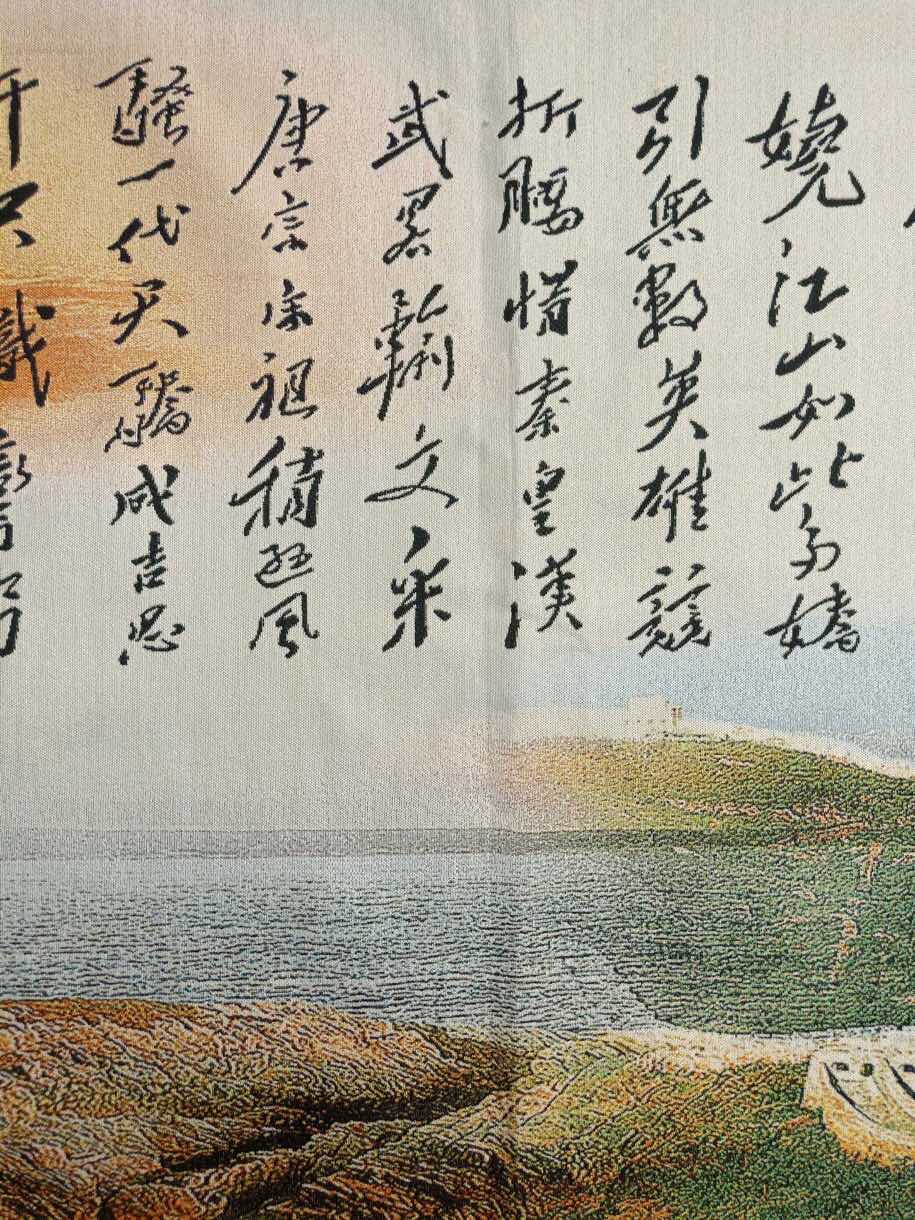 嬈江山如此多嬌
引無數英雄競
折腰惜秦皇漢
武畧輸文采
唐宗宋祖稍遜風
騷一代天驕成吉思
只識